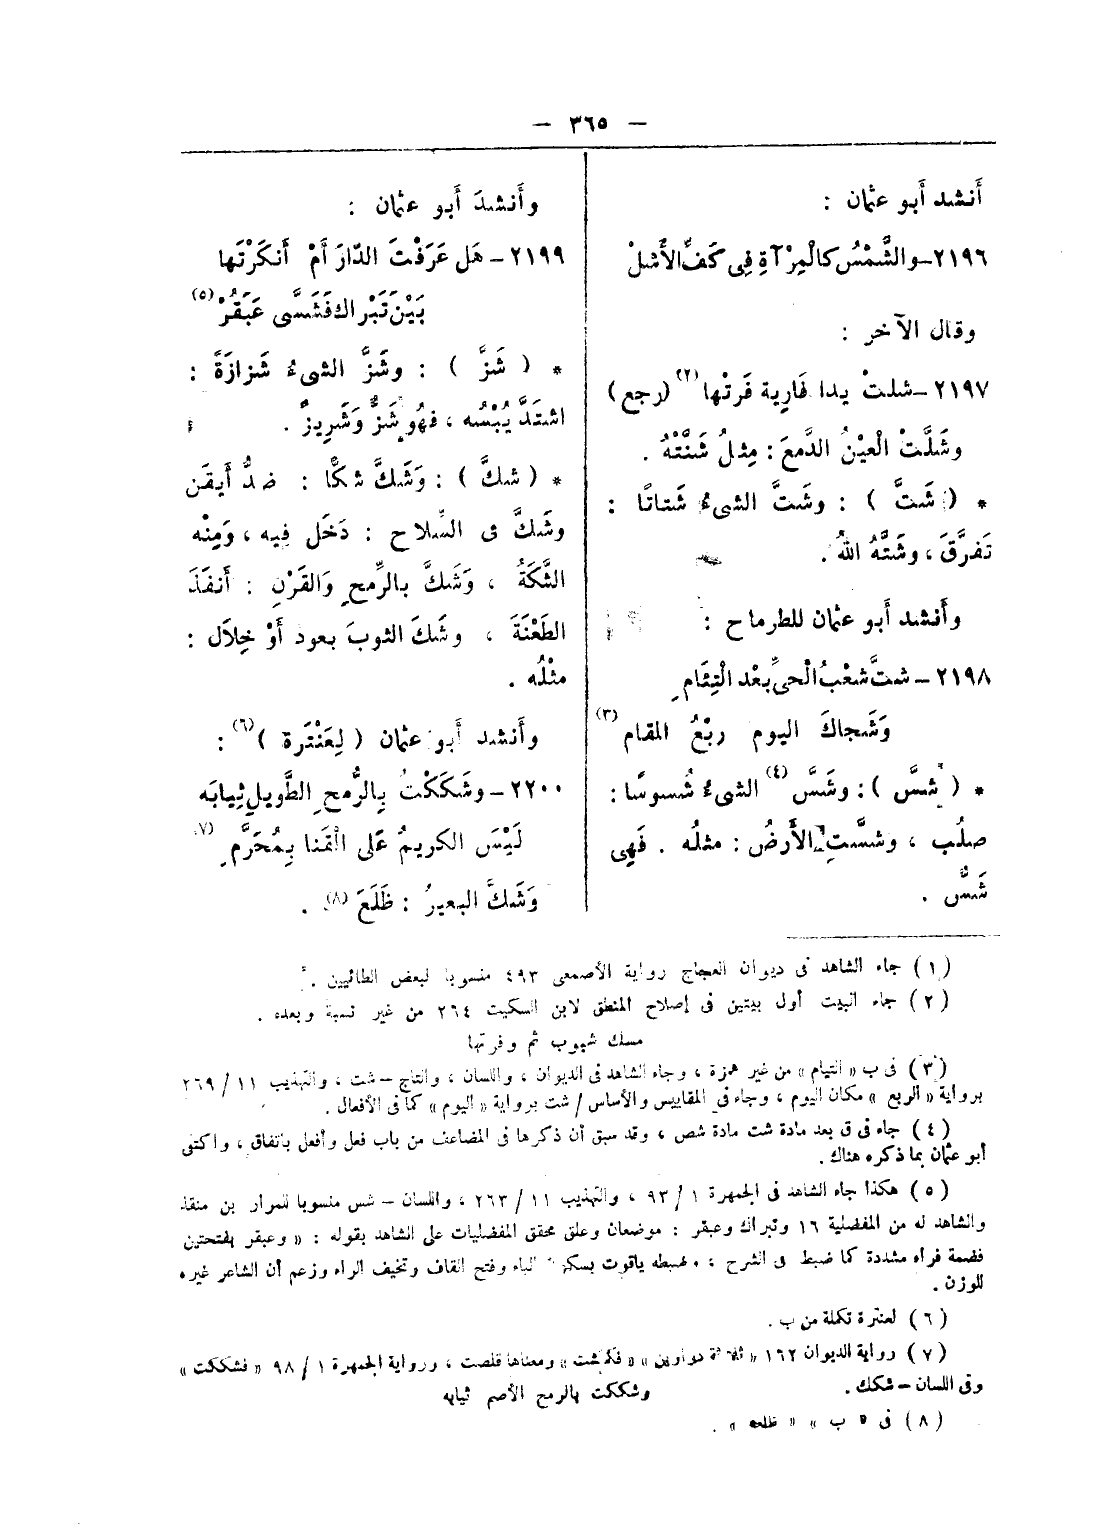 — ٣٦٥ —
أنشد أبو عثمان :
٢١٩٦ـ والشَّمْسُ كالْمِرْآةِ فِى كَفِّ الأَشلْ
وقال الآخر :
٢١٩٧ ـ شلتْ يدا فارية فَرَتْها (٢) (رجع)
وشَلَّتْ الْعيْنُ الدَّمعَ : مِثلُ شَنَّتْهُ .
* ( شَتَّ ) : وشتَّ الشىءُ شَتاتًا :
تَفرَّقَ ، وشتَّهُ اللهُ .
وأَنشد أبو عثمان للطرماح :
٢١٩٨ ـ شتَّ شعْبُ الْحىِّ بعْد الْتِئَامِ
وَشَجاكَ اليوم ربْعُ المقام (٣)
* ( شسَّ ) : وشَسَّ (٤) الشىءُ شُسوسًا :
صلُب ، وشسَّتِ الأَرضُ : مثلُه . فَهِى
شَسٌّ .
وأَنشدَ أَبو عثمان :
٢١٩٩ ـ هَل عَرَفْتَ الدّارَ أَمْ أَنكَرْتَها
بَيْنَ تَبْرِ اك فَشَسَّى عَبَقُرْ (٥)
* ( شَزَّ ) : وشَزَّ الشىءُ شَزازَةً :
اشتَدَّ يُبْسُه ، فهُو شَزٌّ وَشَرِيزٌ .
* ( شكَّ ) : وَشَكَّ شكًّا : ضدُّ أَيقَن
وشَكَّ فى السِّلاح : دَخَل فيه ، وَمِنْه
الشَّكَةُ ، وَشَكَّ بالرِّمح وَالقَرْنِ : أَنفَذَ
الطَعْنَةَ ، وشَكَ الثوبَ بعود أَوْ خِلاَل :
مثْلُه .
وأَنشد أَبو عثمان ( لِعَنْتَرة ) (٦) :
٢٢٠٠ ـ وشَكَكْتُ بِالرُّمحِ الطَّويلِ ثِيابَه
لَيْسَ الكريمُ عَلى القَنا بِمُحَرَّمِ (٧)
وَشَكَّ البعيرُ : ظَلَعَ (٨) .
( ١ ) جاء الشاهد فى ديوان العجاج رواية الأصمعى ٤٩٣ منسوبا لبعض الطائيين .
( ٢ ) جاء البيت أول بيتين فى إصلاح المنطق لابن السكيت ٢٦٤ من غير نسبة وبعده .
مسك شبوب ثم وفرتها
( ٣ ) فى ب « التيام » من غير همزة ، وجاء الشاهد فى الديوان ، واللسان ، والتاج – شت ، والتهذيب ١١ / ٢٦٩
برواية « الربع » مكان اليوم ، وجاء فى المقاييس والأساس / شت برواية « اليوم » كما فى الأفعال .
( ٤ ) جاء فى ق بعد مادة شت مادة شص ، وقد سبق أن ذكرها فى المضاعف من باب فعل وأفعل باتفاق ، واكتفى
أبو عثمان بما ذكره هناك .
( ٥ ) هكذا جاء الشاهد فى الجمهرة ١ / ٩٣ ، والتهذيب ١١ / ٢٦٣ ، واللسان – شس منسوبا للمرار بن منقذ
والشاهد له من المفضلية ١٦ وتبراك وعبقر : موضعان وعلق محقق المفضليات على الشاهد بقوله : « وعبقر بفتحتين
فضمة فراء مشددة كما ضبط فى الشرح ، وضبطه ياقوت بسكون الباء وفتح القاف وتخفيف الراء وزعم أن الشاعر غيره
للوزن .
( ٦ ) لعنترة تكملة من ب .
( ٧ ) رواية الديوان ١٦٢ « ثلاثة دواوين » « فكمشت » ومعناها قلصت ، ورواية الجمهرة ١ / ٩٨ « فشككت »
وفى اللسان – شكك .
وشككت بالرمح الأصم ثيابه
( ٨ ) فى ب « ظلعه » .